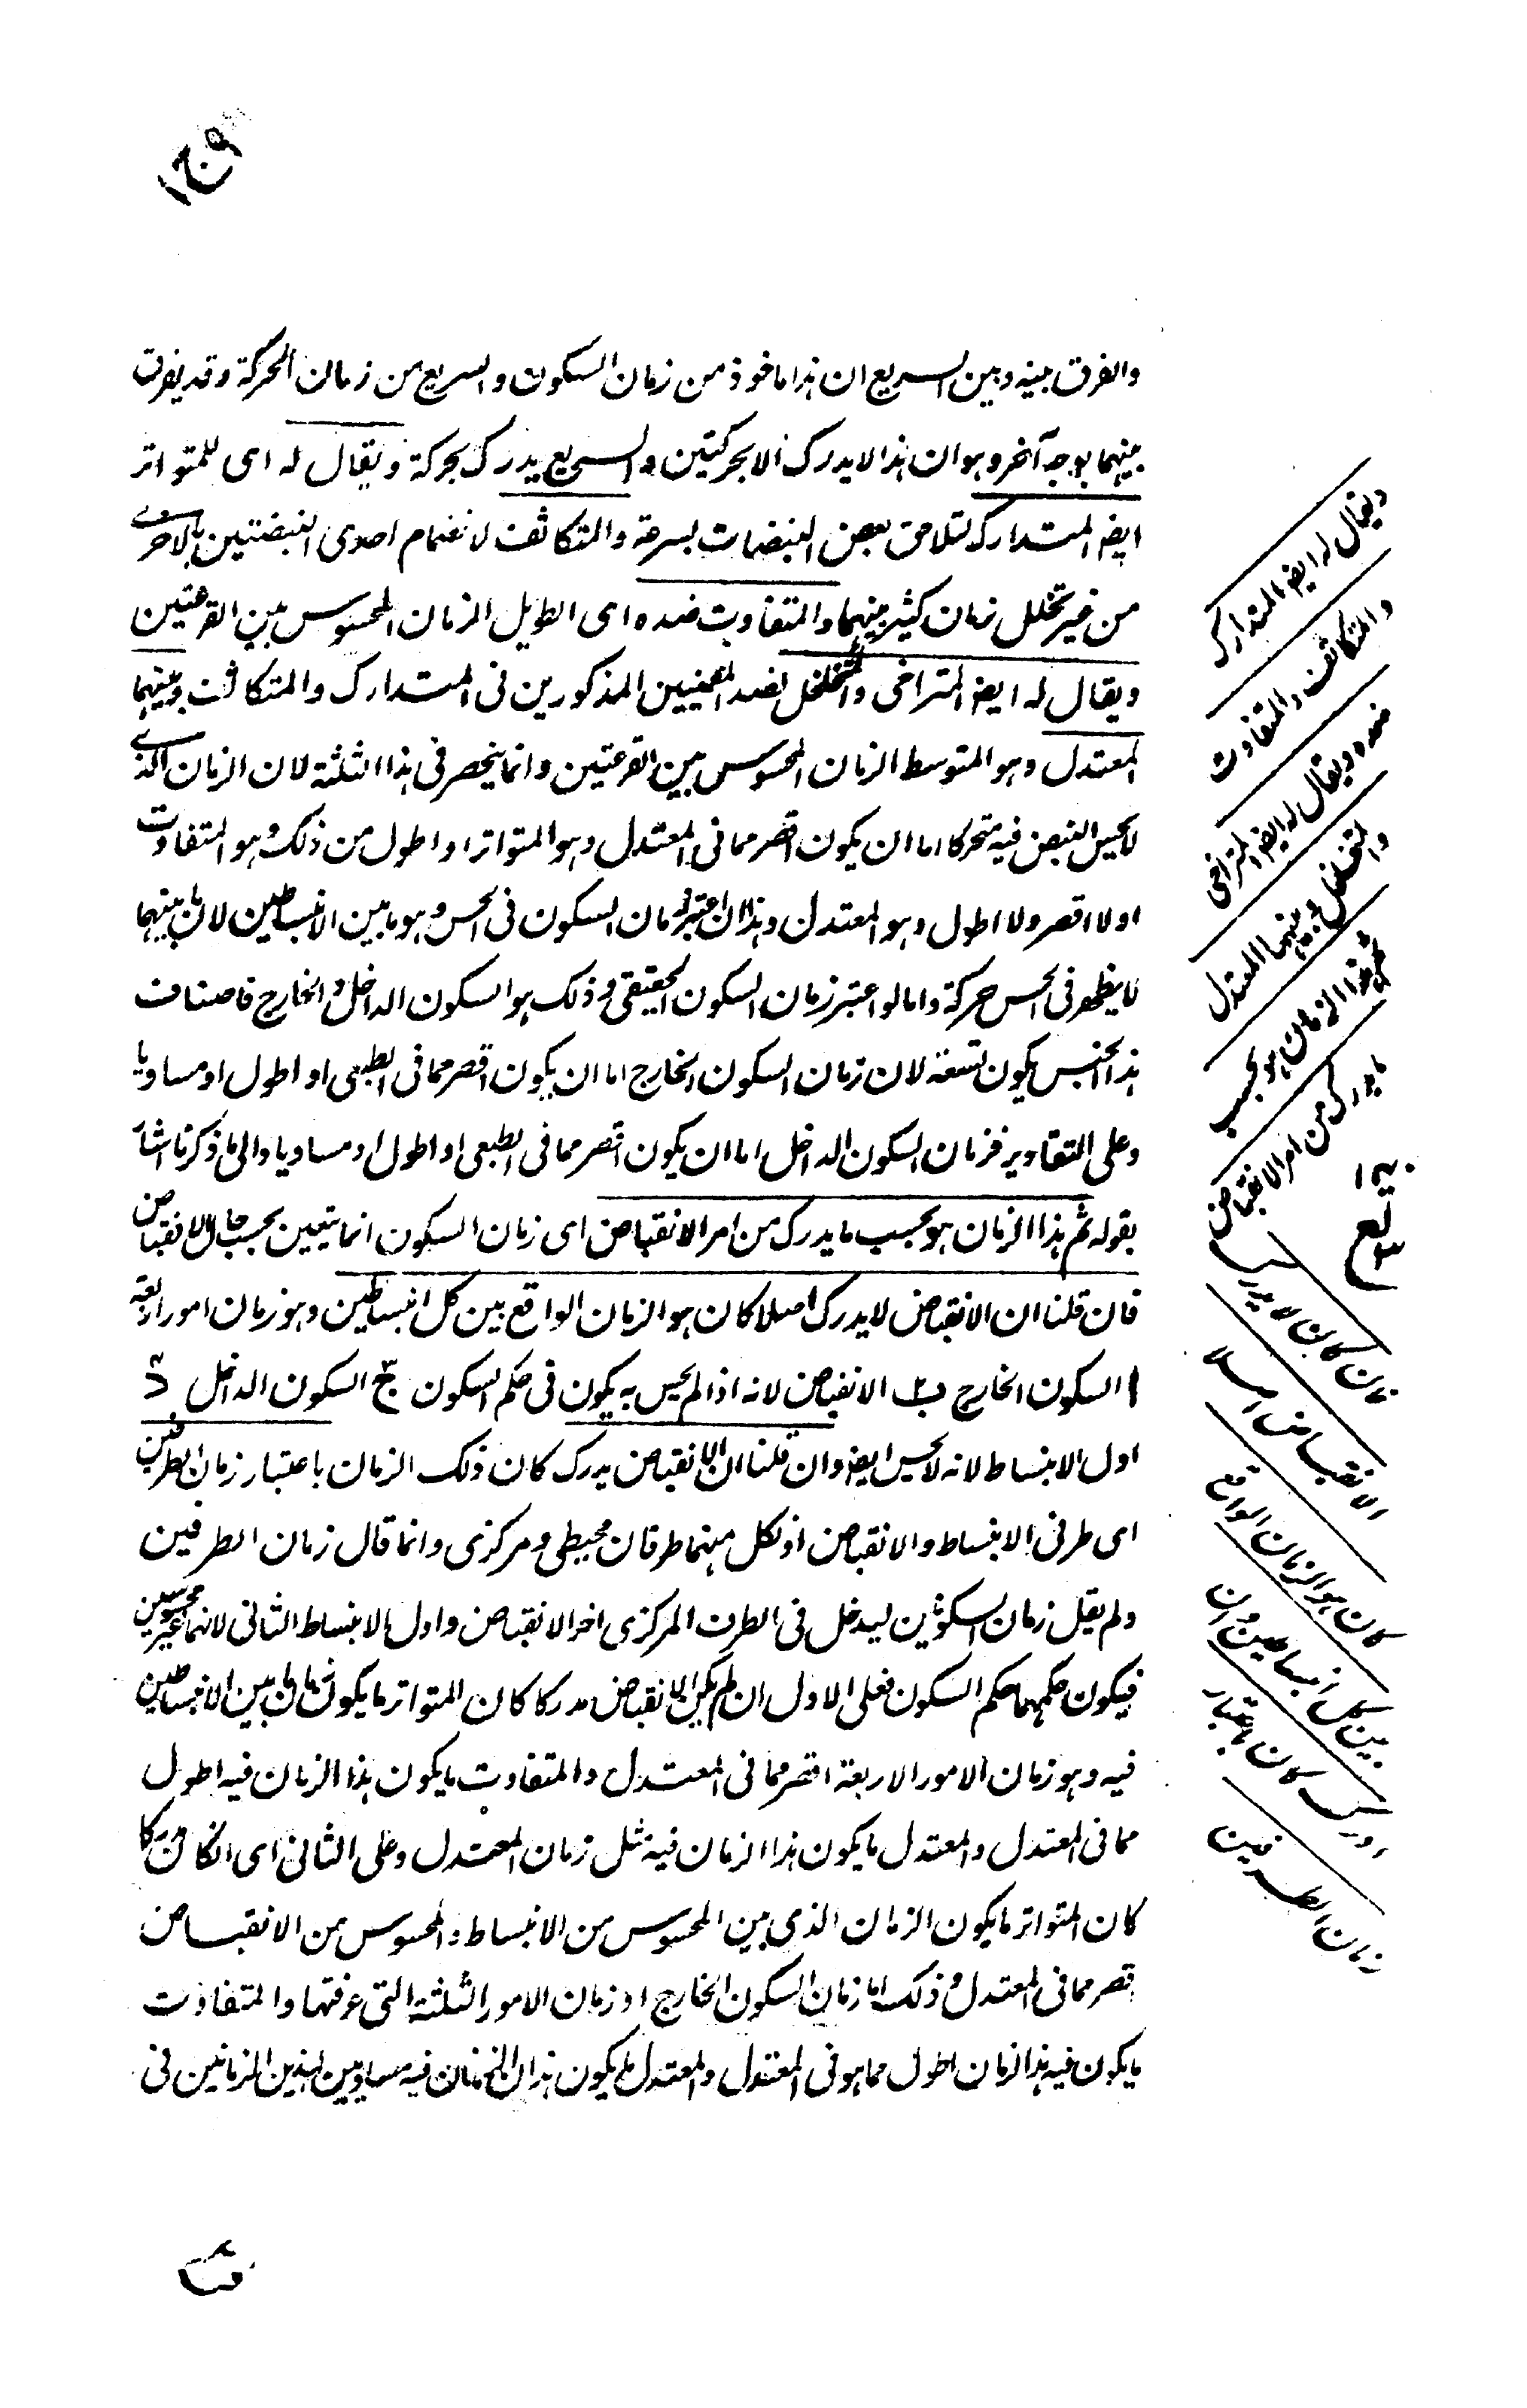 والفرق بينه وبين السريع ان هذا ماخوذ من زمان السكون والسريع من زمان الحركة وقد يفرق
بينهما بوجه آخر وهو ان هذا لا يدرك الا بحركتين والسريع يدرك بحركة ويقال له اى للمتواتر
ايضا المتدارك لتلاحق بعض النبضات بسرعة والمتكاثف لانضمام احدى النبضتين بالاخرى
من غير تخلل زمان كثير بينهما والمتفاوت ضده اى الطويل الزمان المحسوس بين القرعتين
ويقال له ايضا المتراخى والمتخلخل لضد المعنيين المذكورين فى المتدارك والمتكاثف وبينهما
المعتدل وهو المتوسط الزمان المحسوس بين القرعتين وانما ينحصر فى هذا الثلثة لان الزمان الذى
لا يحس النبض فيه متحركا اما ان يكون اقصر مما فى المعتدل وهو المتواتر او اطول من ذلك وهو المتفاوت
او لا اقصر ولا اطول وهو المعتدل وهذا ان اعتبر زمان السكون فى الحس وهو ما بين الانبساطين لان ما بينهما
لا يظهر فى الحس حركة واما لو اعتبر زمان السكون الحقيقى وذلك هو السكون الداخل والخارج فاصناف
هذا الجنس يكون تسعة لان زمان السكون الخارج اما ان يكون اقصر مما فى الطبعى او اطول او مساويا
وعلى التقادير فزمان السكون الداخل اما ان يكون اقصر مما فى الطبعى او اطول او مساويا والى ما ذكرنا اشار
بقوله ثم هذا الزمان هو بحسب ما يدرك من امر الانقباض اى زمان السكون انما يتعين بحسب حال الانقباض
فان قلنا ان الانقباض لا يدرك اصلا كان هو الزمان الواقع بين كل انبساطين وهو زمان امور اربعة
ا السكون الخارج ب الانقباض لانه اذا لم يحس به يكون فى حكم السكون ج السكون الداخل د
اول الانبساط لانه لا يحس ايضا وان قلنا ان الانقباض يدرك كان ذلك الزمان باعتبار زمان الطرفين
اى طرفى الانبساط والانقباض اذ لكل منهما طرفان محيطى ومركزى وانما قال زمان الطرفين
ولم يقل زمان السكونين ليدخل فى الطرف المركزى اخر الانقباض واول الانبساط الثانى لانهما غير محسوسين
فيكون حكمهما حكم السكون فعلى الاول ان لم يكن الانقباض مدركا كان المتواتر ما يكون زمان ما بين الانبساطين
فيه وهو زمان الامور الاربعة اقصر مما فى المعتدل والمتفاوت ما يكون هذا الزمان فيه اطول
مما فى المعتدل والمعتدل ما يكون هذا الزمان فيه مثل زمان المعتدل وعلى الثانى اى ان كان مدركا
كان المتواتر ما يكون الزمان الذى بين المحسوس من الانبساط والمحسوس من الانقباض
قصر مما فى المعتدل وذلك اما زمان السكون الخارج او زمان الامور الثلثة التى عرفتها والمتفاوت
ما يكون فيه هذا الزمان اطول مما هو فى المعتدل والمعتدل ما يكون هذان الزمانان فيه مساويين لهذين الزمانين فى
ويقال له ايضا المتدارك
والمتكاثف والمتفاوت
ضده ويقال له ايضا المتراخى
والمتخلخل وبينهما المعتدل
ثم هذا الزمان هو بحسب
ما يدرك من امر الانقباض
فان كان لا يدرك
الانقباض اصلا
كان هو الزمان الواقع
بين كل انبساطين وان
ادرك كان باعتبار
زمان الطرفين